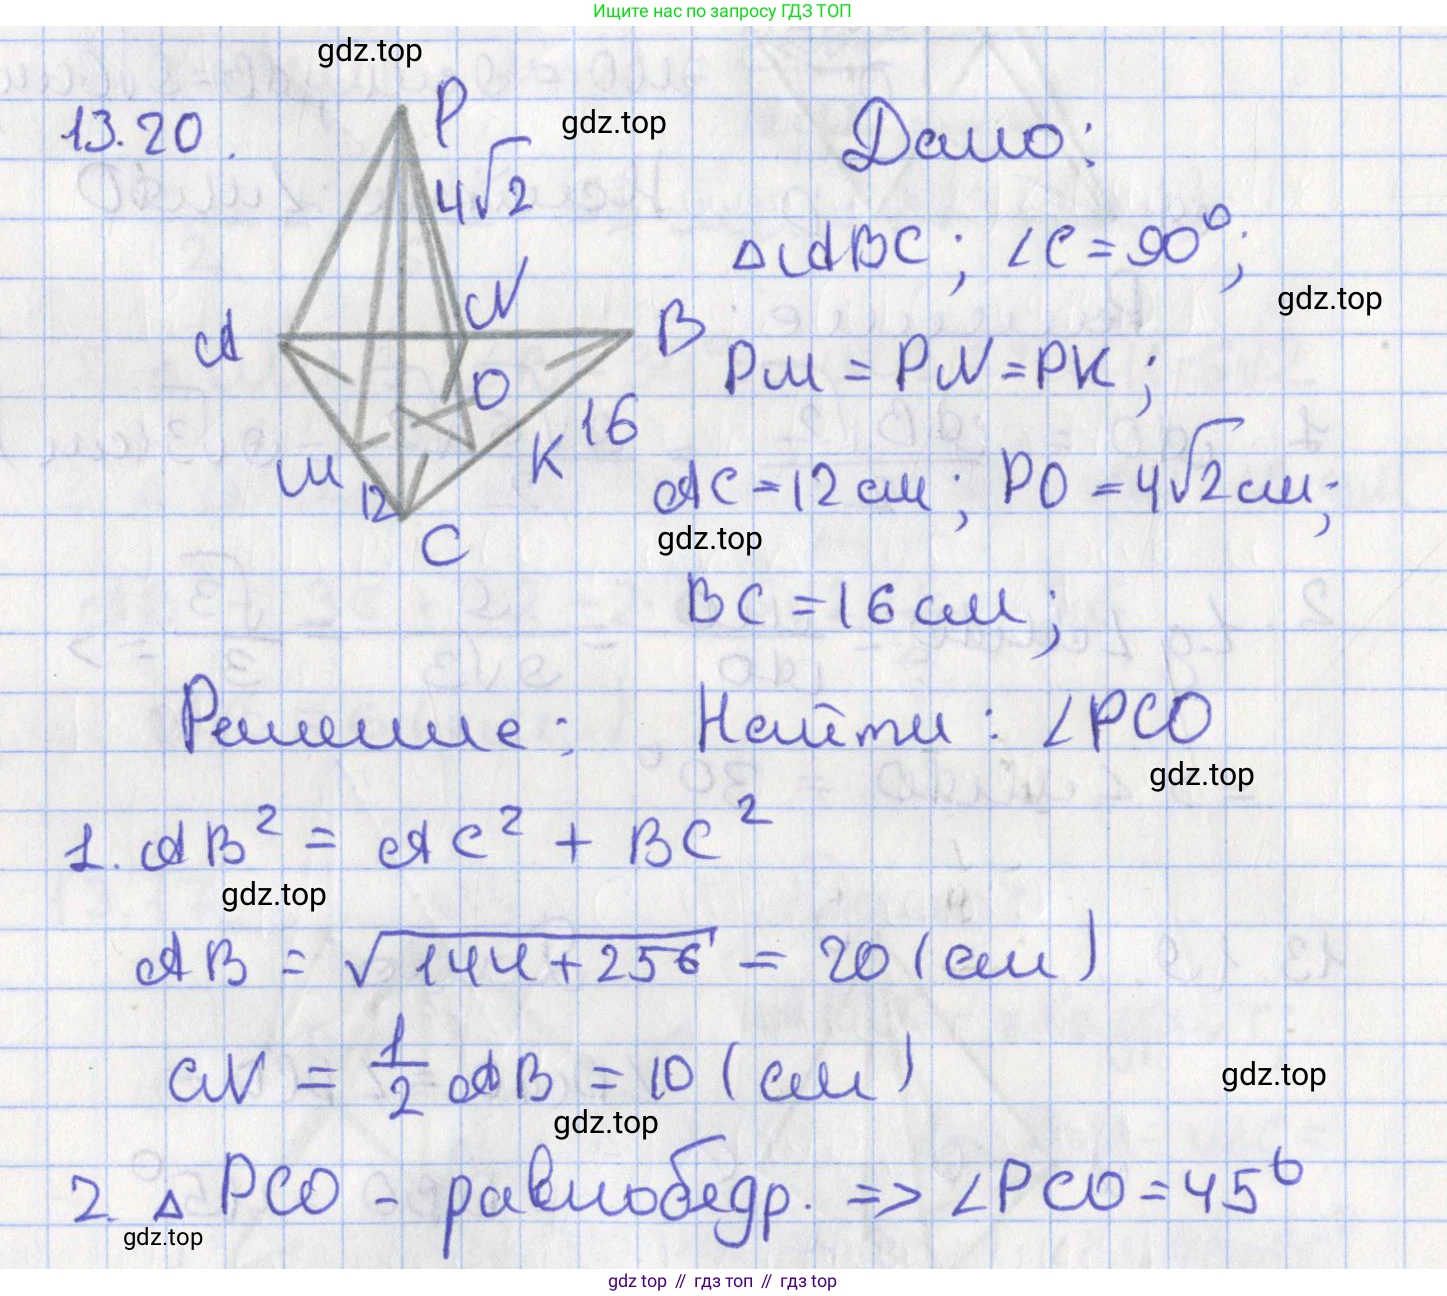 Ищите нас по запросу ГДЗ ТОП
gdz.top
13.20.
P
gdz.top
Дано:
4√2
△ABC; ∠C = 90°;
gdz.top
N
A
B
PM = PN = PK;
O
16
M
K
AC = 12 см; PO = 4√2 см;
12
gdz.top
C
BC = 16 см;
Решение:
Найти: ∠PCO
gdz.top
1. AB² = AC² + BC²
gdz.top
AB = √144+256 = 20 (см)
CN = 1/2 AB = 10 (см)
gdz.top
gdz.top
2. △PCO - равнобедр. => ∠PCO = 45°
gdz.top
gdz top // гдз топ // гдз top